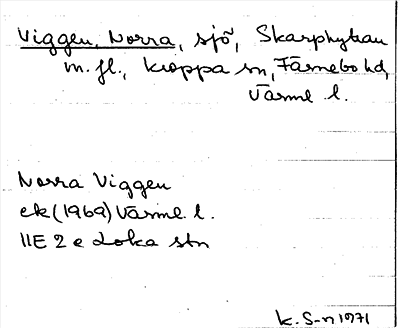 Viggen, Norra, sjö, Skarphyttan
m. fl., Kroppa sn, Färnebo hd,
Värml l.
Norra Viggen
ek (1969) Värml. l.
11E 2 e Loka stn
K. S-n 1971